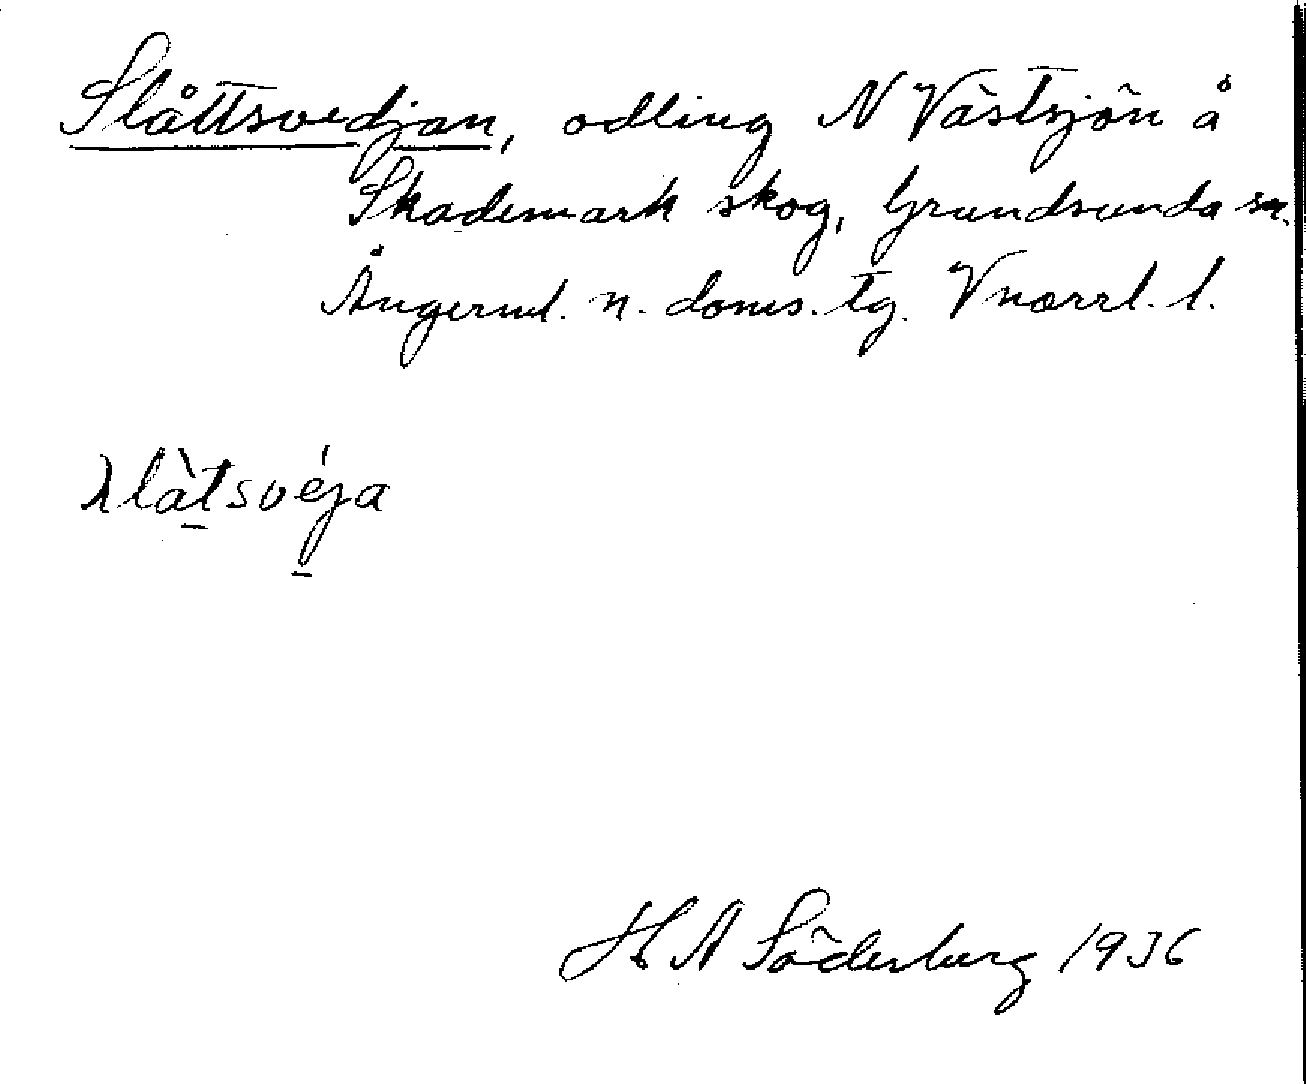 Slåttsvedjan, odling N Västsjön å
Skademark skog, Grundsunda sn.
Ångerml. n. doms. tg. Vnorrl. l.
slàtsvéja
H A Söderberg 1936